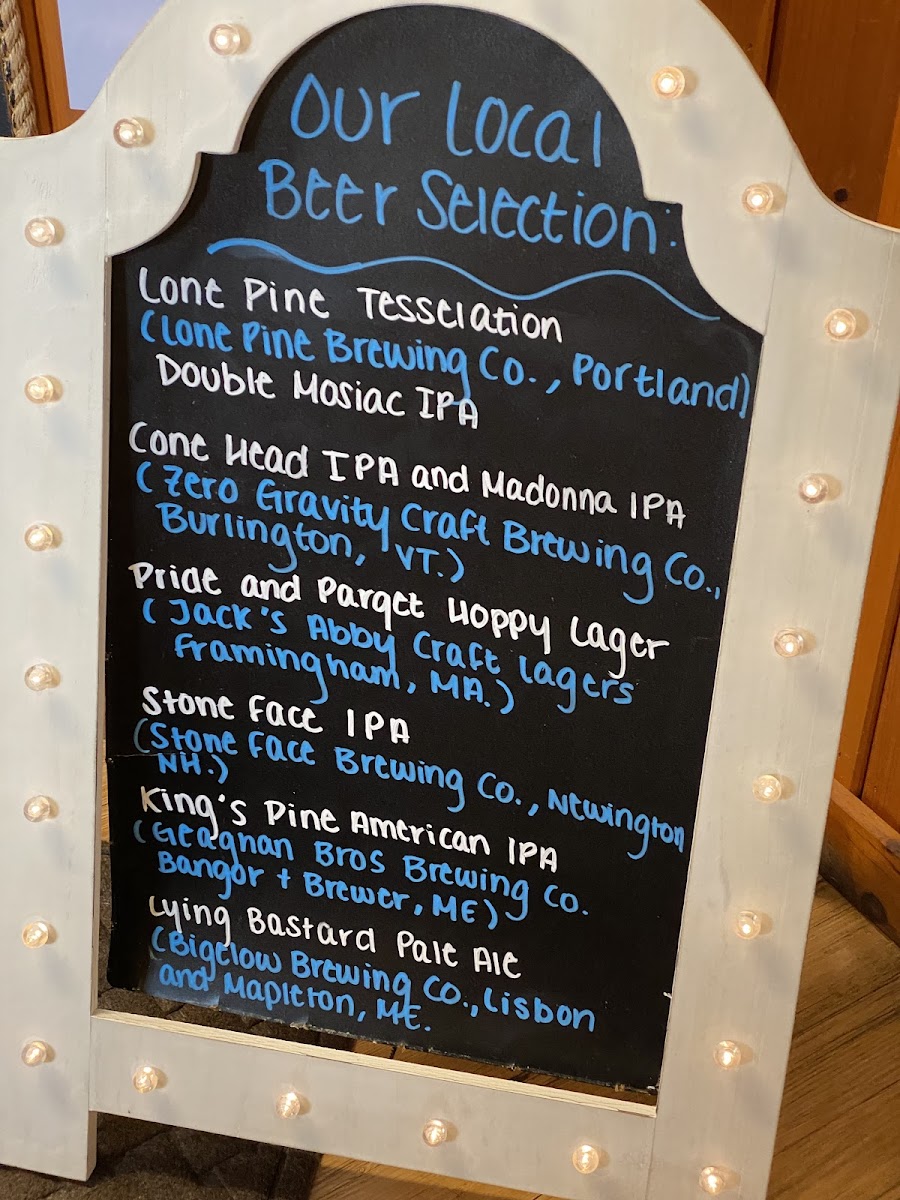 Our Local
Beer Selection:
Lone Pine Tesselation
(Lone Pine Brewing Co., Portland)
Double Mosiac IPA
Cone Head IPA and Madonna IPA
(Zero Gravity Craft Brewing Co.,
Burlington, VT.)
Pride and Parget Hoppy Lager
(Jack's Abby Craft Lagers
Framingham, MA.)
Stone Face IPA
(Stone Face Brewing Co., Newington
NH.)
King's Pine American IPA
(Geagnan Bros Brewing Co.
Bangor + Brewer, ME)
Lying Bastard Pale Ale
(Bigelow Brewing Co., Lisbon
and Mapleton, ME.